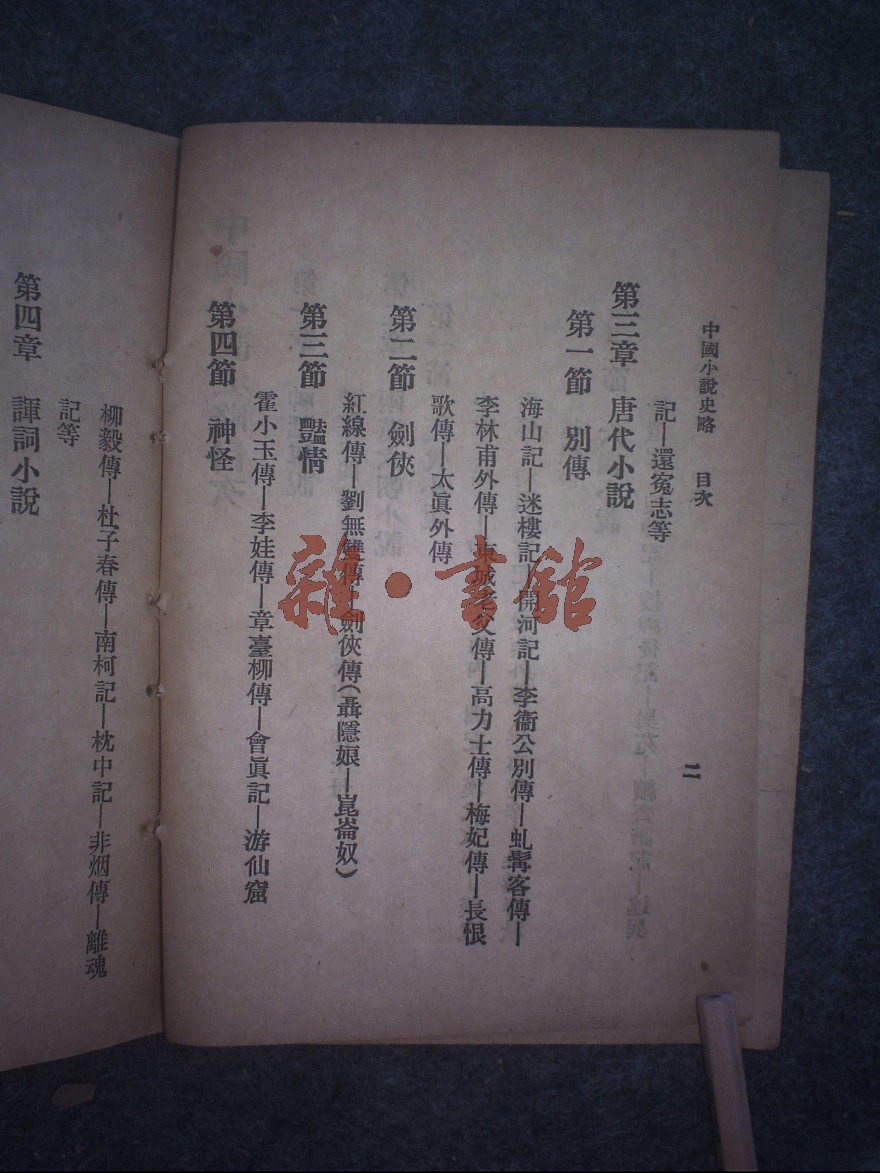 中國小說史略 目次
二
記—還寃志等
第三章 唐代小說
第一節 別傳
海山記—迷樓記—開河記—李衞公別傳—虬髯客傳—
李林甫外傳—東城老父傳—高力士傳—梅妃傳—長恨
歌傳—太眞外傳
第二節 劍俠
紅線傳—劉無雙傳—劍俠傳(聶隱娘—崑崙奴)
第三節 豔情
霍小玉傳—李娃傳—章臺柳傳—會眞記—游仙窟
第四節 神怪
柳毅傳—杜子春傳—南柯記—枕中記—非烟傳—離魂
記等
第四章 諢詞小說
雜·書館